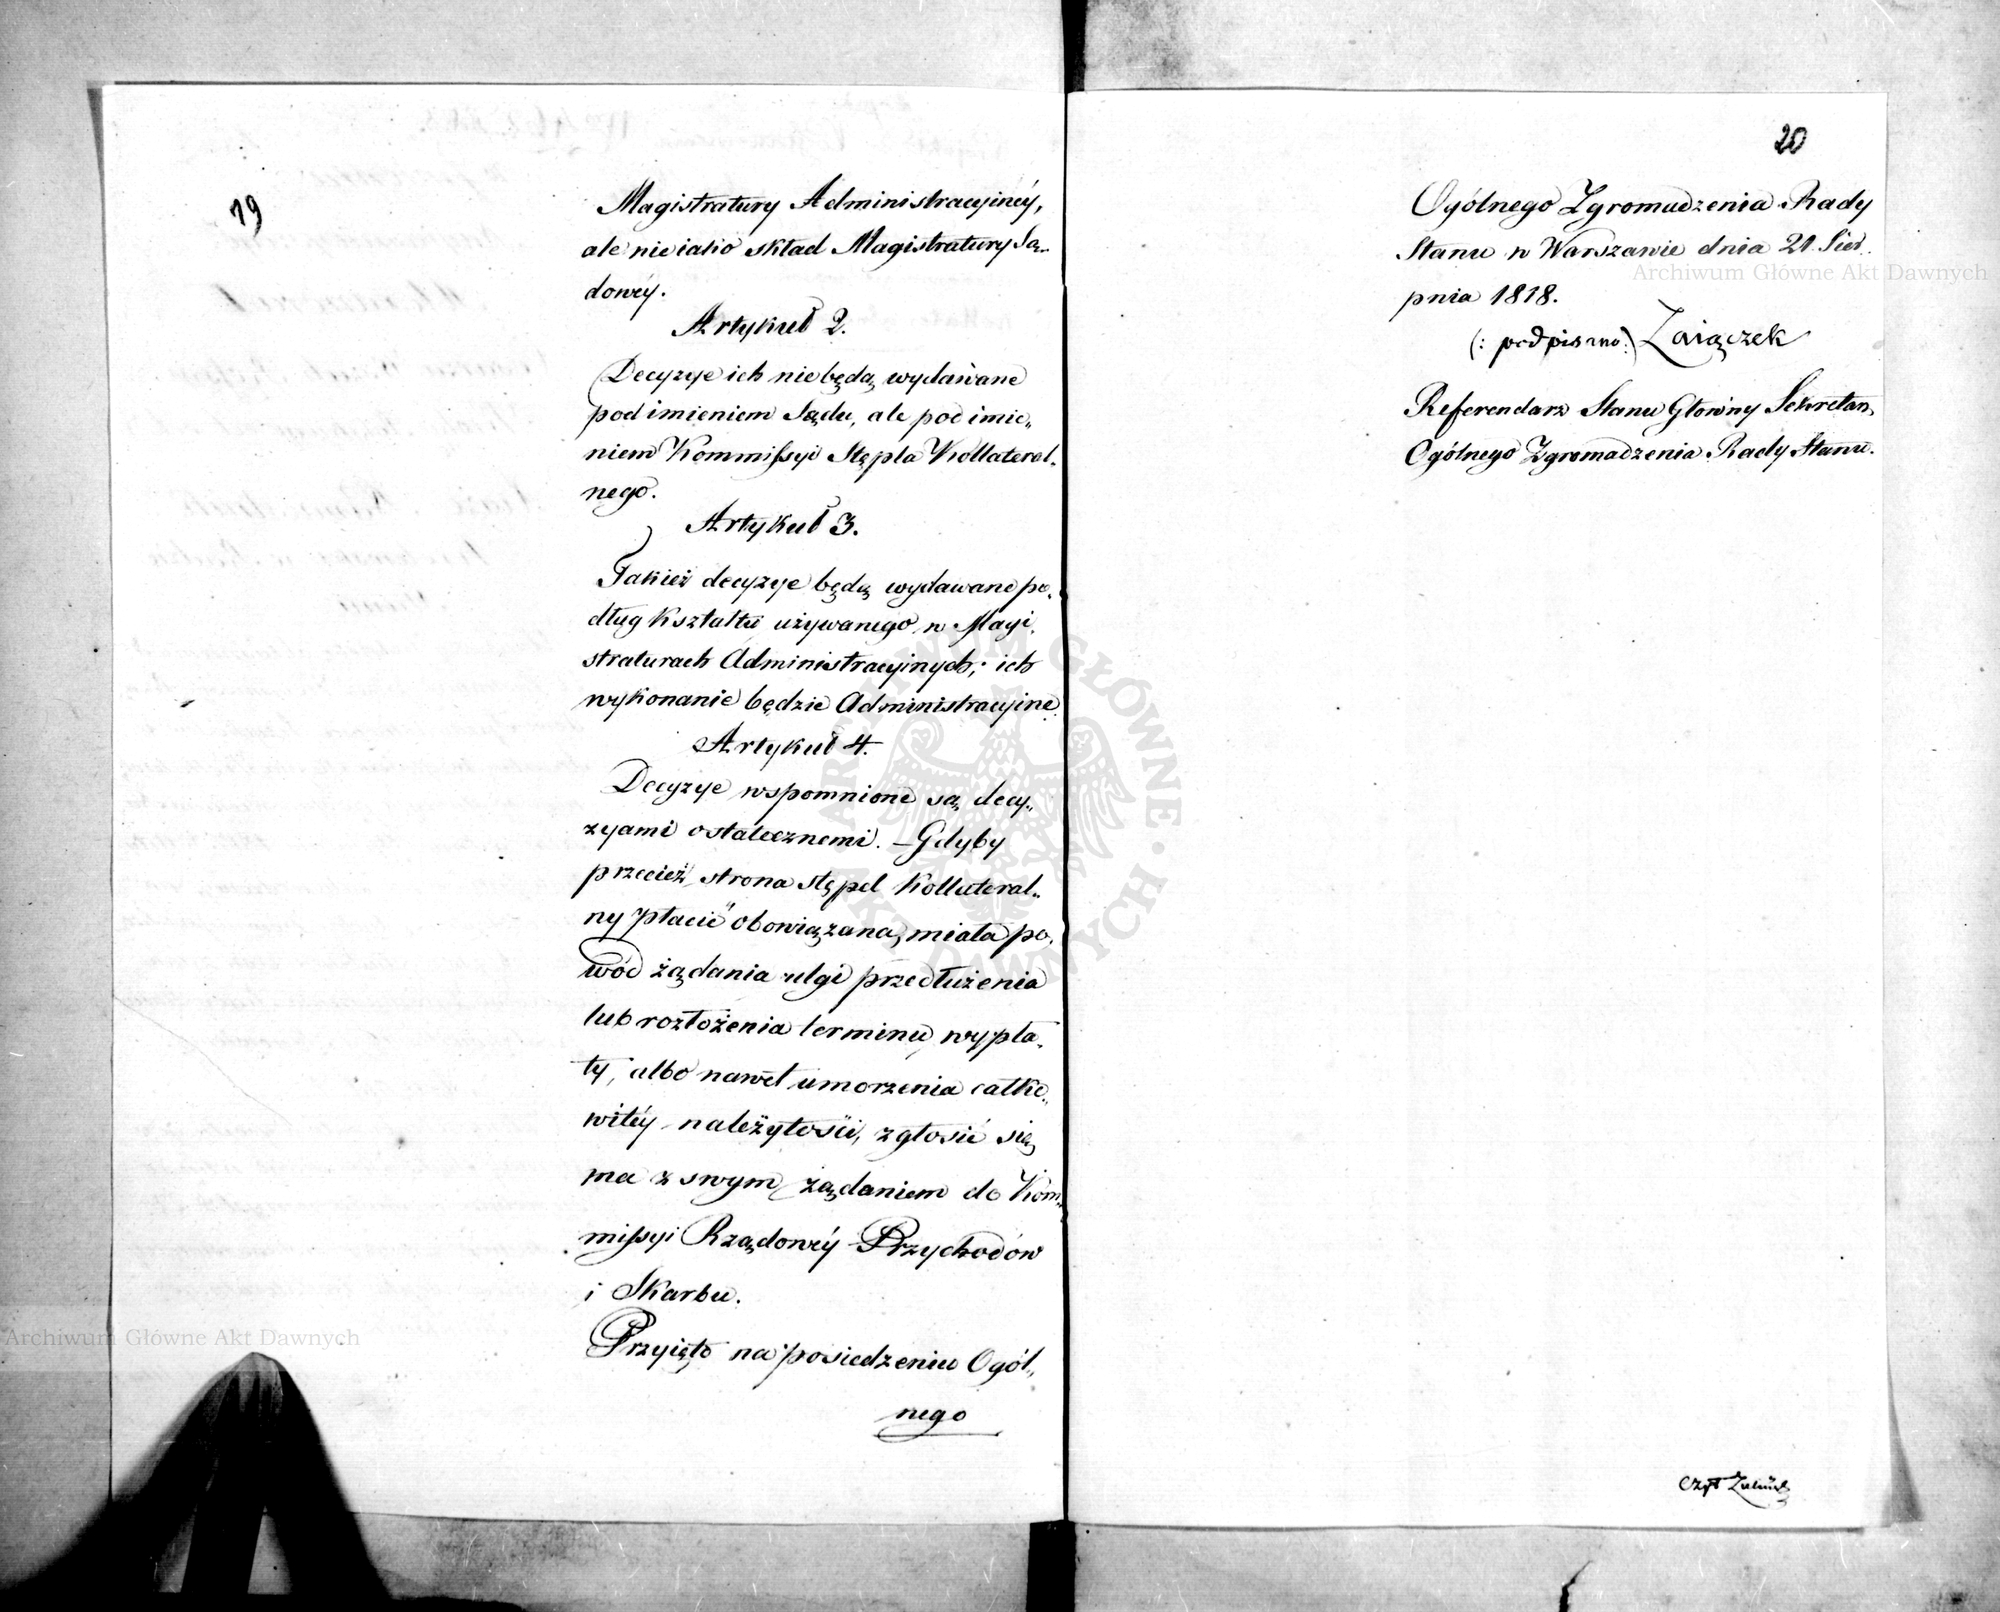 19
Magistratury Administracyinéy,
ale nie iako skład Magistratury Są„
dowéy.
Artykuł 2.
Decyzye ich nie będą wydawane
pod imieniem Sądu, ale pod imie„
niem Kommissyi Stępla Kollateral„
nego.
Artykuł 3.
Takież decyzye będą wydawane po„
dług kształtu używanego w Magi„
straturach Administracyinych; ich
wykonanie będzie Administracyine.
Artykuł 4.
Decyzye wspomnione są decy„
zyami ostatecznemi. – Gdyby
przecież strona stępel Kollateral„
ny płacić obowiązana, miała po„
wód żądania ulgi przedłużenia
lub rozłożenia terminu wypła„
ty, albo nawet umorzenia całko„
witéy należytości, zgłosić się
ma z swym żądaniem do Kom„
missyi Rządowéy Przychodów
i Skarbu.
Przyięto na posiedzeniu Ogól„
nego
20
Ogólnego Zgromadzenia Rady
Stanu w Warszawie dnia 21 Sier„
pnia 1818.
(: podpisano:) Zaiączek
Referendarz Stanu Główny Sekretarz
Ogólnego Zgromadzenia Rady Stanu.
Czyt
Archiwum Główne Akt Dawnych
Archiwum Główne Akt Dawnych
ARCHIWUM GŁÓWNE AKT DAWNYCH